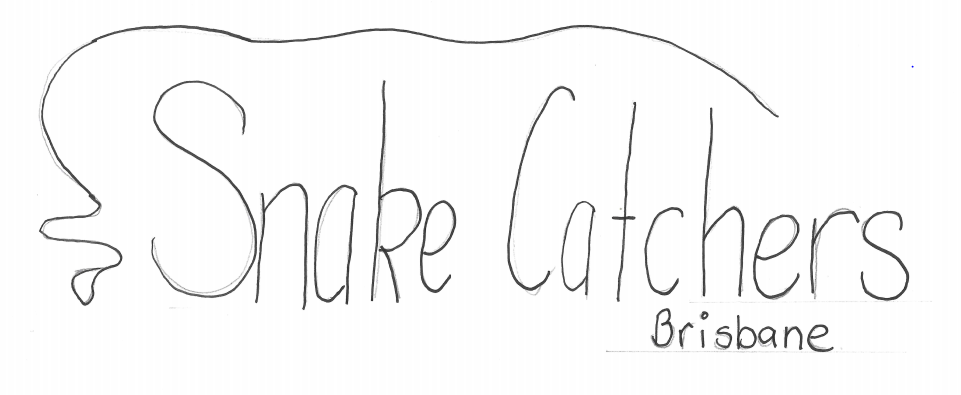 Snake Catchers
Brisbane